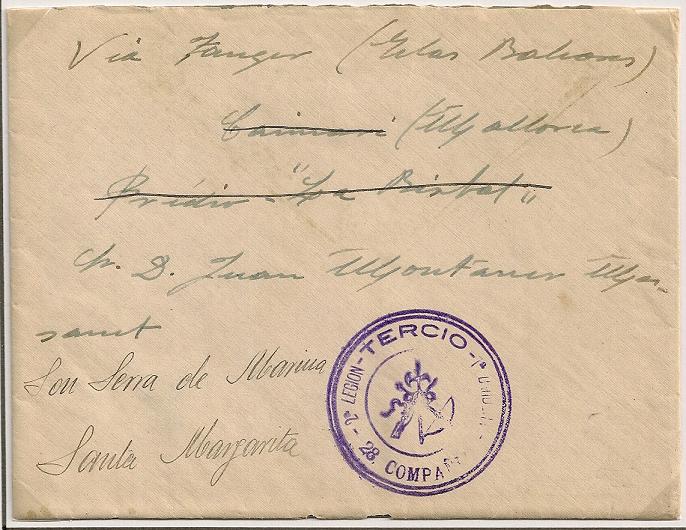 Via Tanger (Yslas Baleares)
Caimari (Mallorca)
Prédio - "La Bisbal"
Sr. D. Juan Montaner Mon-
sant
Son Serra de Marina
Santa Margarita
- TERCIO -
LEGION
28. COMPAÑ